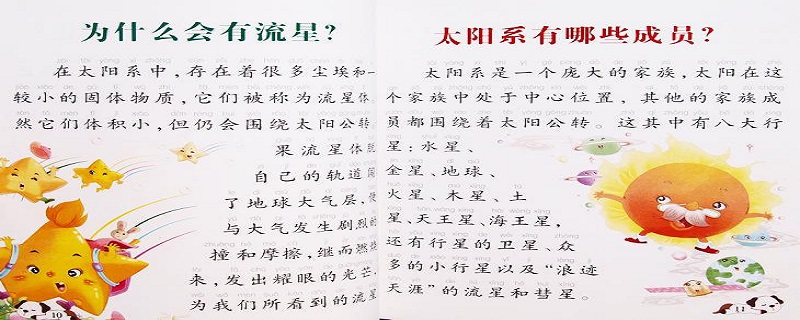 为什么会有流星?
在太阳系中,存在着很多尘埃和一
较小的固体物质,它们被称为流星体
然它们体积小,但仍会围绕太阳公转
果流星体
自己的轨道
了地球大气层,
与大气发生剧烈的
撞和摩擦,继而燃烧
来,发出耀眼的光芒,
为我们所看到的流星
10
太阳系有哪些成员?
太阳系是一个庞大的家族,太阳在这
个家族中处于中心位置,其他的家族成
员都围绕着太阳公转。这其中有八大行
星:水星、
金星、地球、
火星、木星、土
星、天王星、海王星,
还有行星的卫星、众
多的小行星以及“浪迹
天涯”的流星和彗星。
11